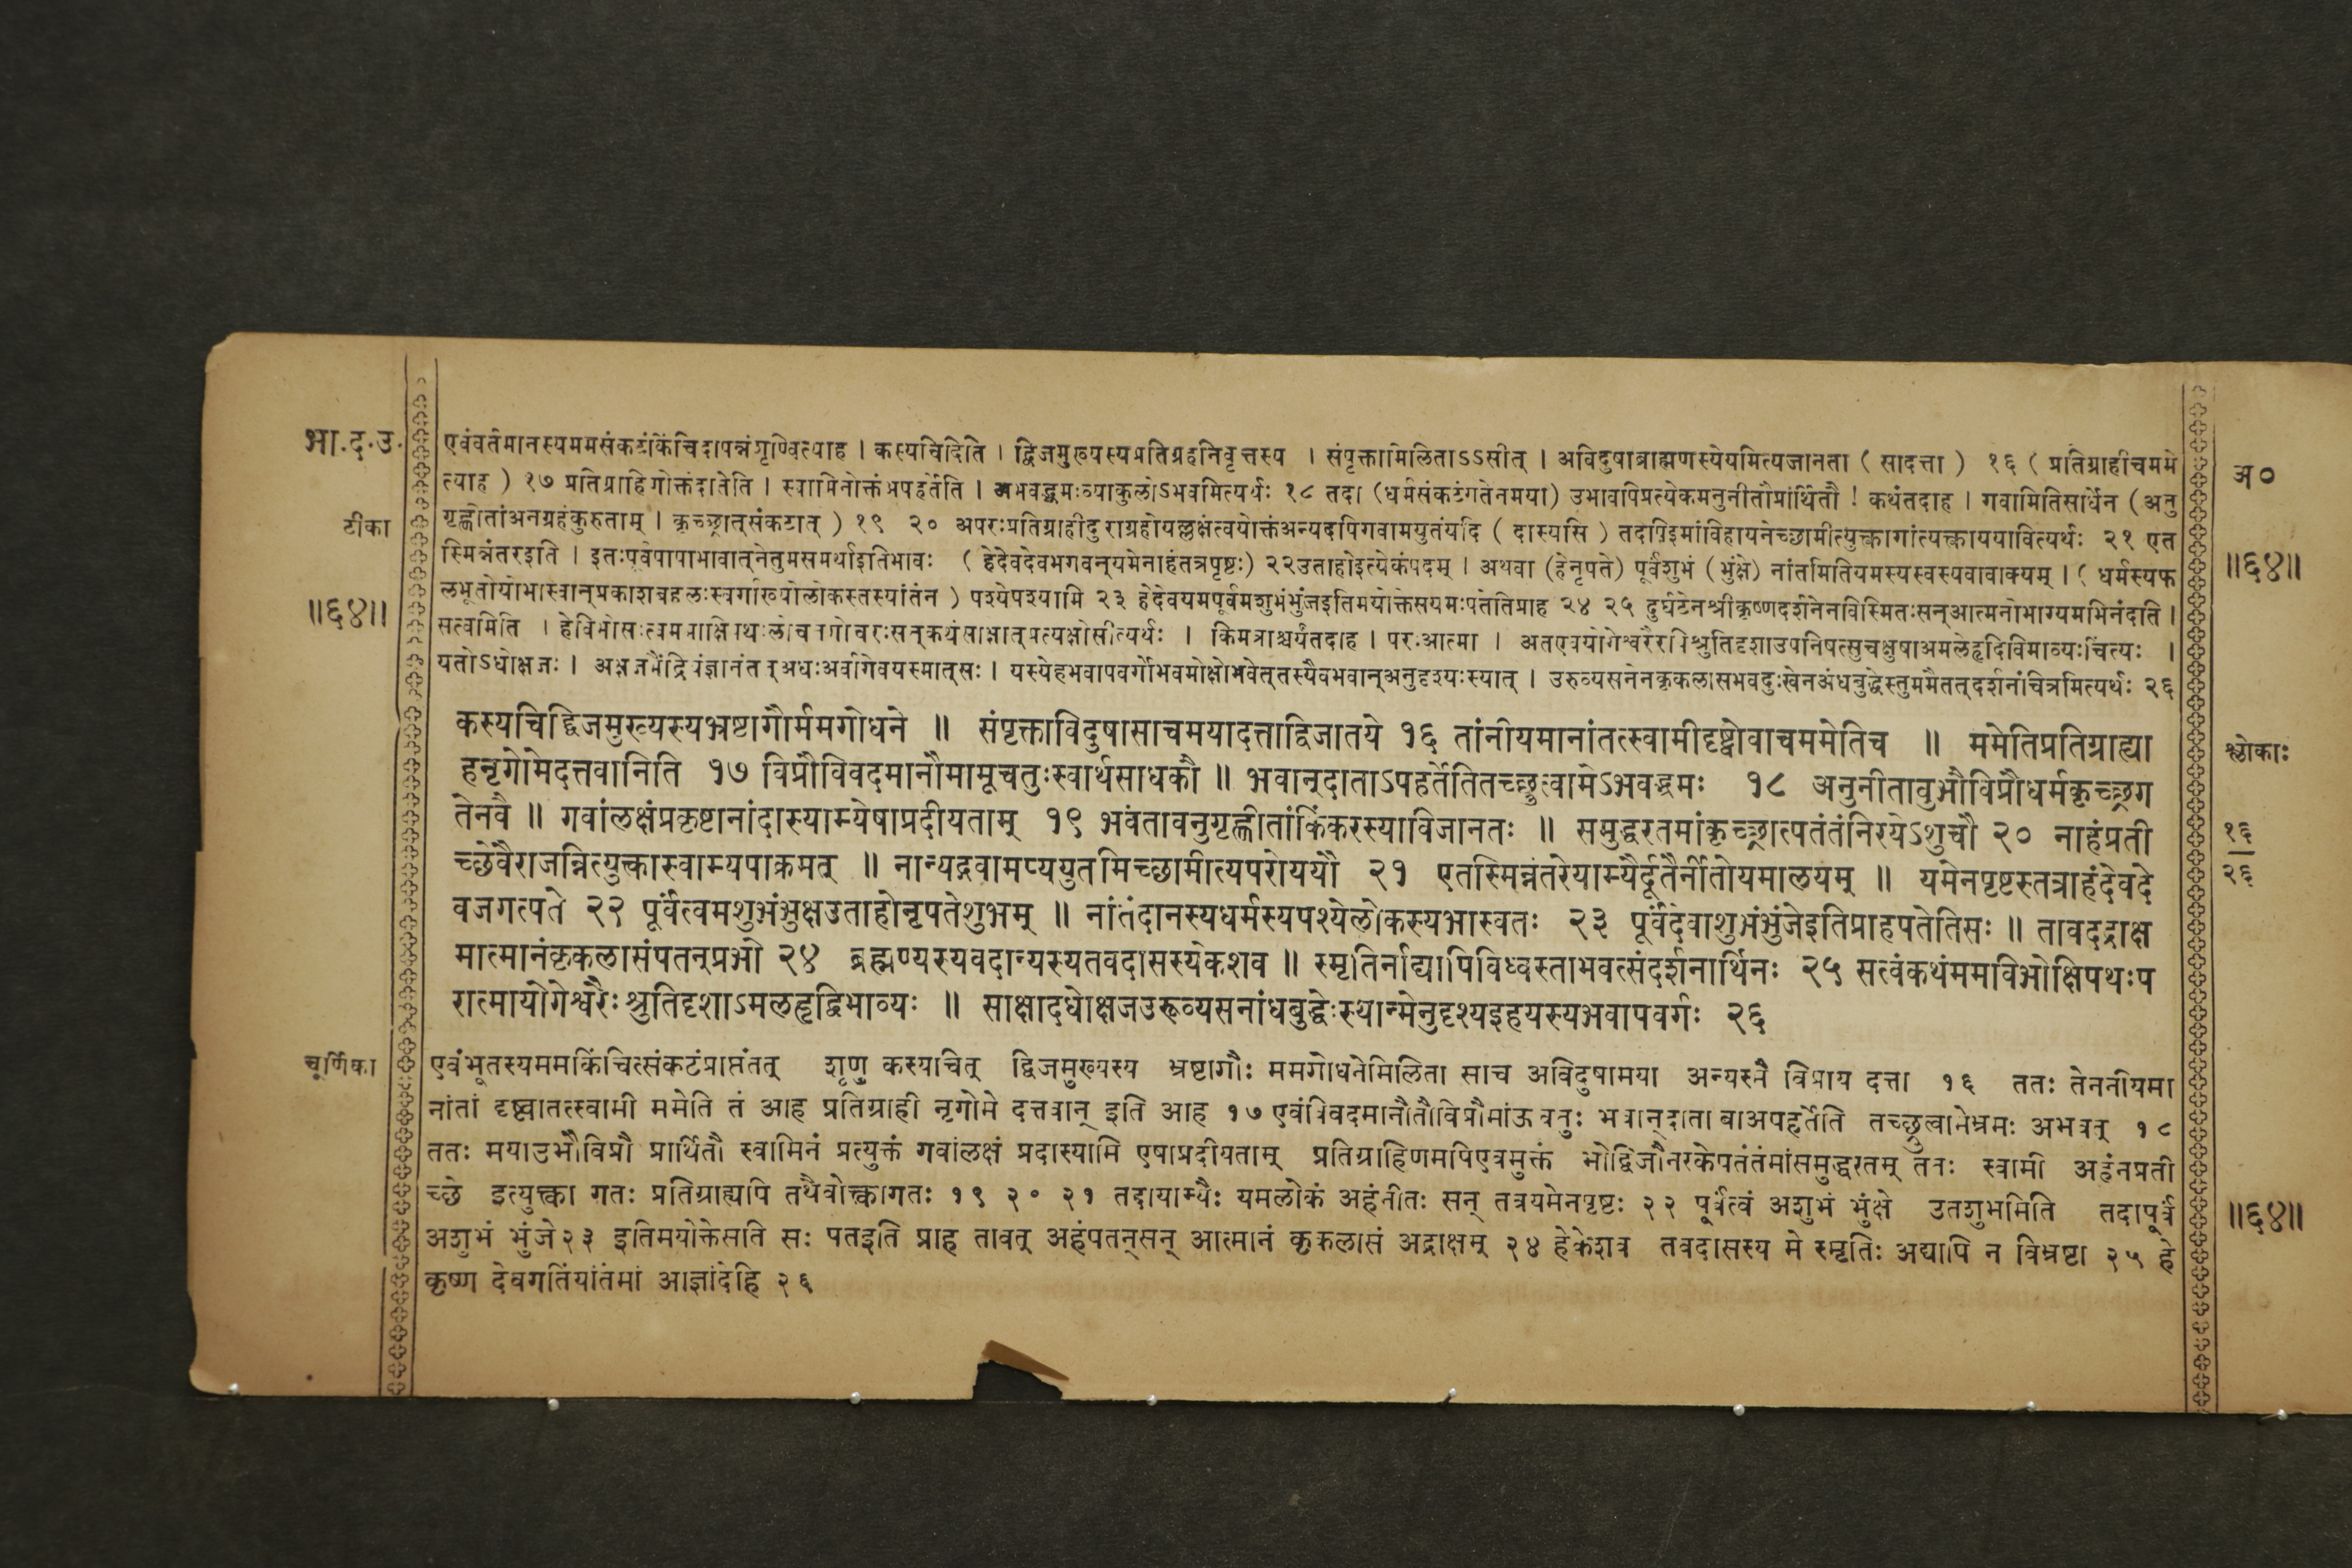 भा.द.उ.
एवंवर्तमानस्यममसंकटंकिंचिदापन्नंशृण्वित्याह । कस्यचिदिति । द्विजमुख्यस्यप्रतिग्रहनिवृत्तस्य । संपृक्तामिलिताऽऽसीत् । अविदुषाब्राह्मणस्येयमित्यजानता ( सादत्ता ) १६ ( प्रतिग्राहीचममे
अ०
त्याह ) १७ प्रतिग्राहिणोक्तंदातेति । स्वामिनोक्तंअपहर्तेति । अभवद्भ्रमःव्याकुलोऽभवमित्यर्थः १८ तदा (धर्मसंकटंगतेनमया) उभावपिप्रत्येकमनुनीतौप्रार्थितौ ! कथंतदाह । गवामितिसार्धेन (अनु
टीका
गृह्णीतांअनग्रहंकुरुताम् । कृच्छ्रात्संकटात् ) १९ २० अपरःप्रतिग्राहीदुराग्रहोयल्लक्षंत्वयोक्तंअन्यदपिगवामयुतंयदि ( दास्यसि ) तदापिइमांविहायनेच्छामीत्युक्त्वागांत्यक्त्वाययावित्यर्थः २१ एत
स्मिन्नंतरइति । इतःपूर्वंपापाभावात्नेतुमसमर्थाइतिभावः ( हेदेवदेवभगवन्यमेनाहंतत्रपृष्टः) २२उताहोइत्येकंपदम् । अथवा (हेनृपते) पूर्वंशुभं (भुंक्षे) नांतमितियमस्यस्वस्यवावाक्यम् । ( धर्मस्यफ
॥६४॥
लभूतोयोभास्वान्प्रकाशबहुलःस्वर्गाख्योलोकस्तस्यांतंन ) पश्येपश्यामि २३ हेदेवयमपूर्वमशुभंभुंजइतिमयोक्तेसयमःपतेतिप्राह २४ २५ दुर्घटेनश्रीकृष्णदर्शनेनविस्मितःसन्आत्मनोभाग्यमभिनंदति ।
॥६४॥
सत्वमिति । हेविभोसःत्वंममाक्षिपथःलोचनगोचरःसन्कथंसाक्षात्प्रत्यक्षोसीत्यर्थः । किमत्राश्चर्यंतदाह । परःआत्मा । अतएवयोगेश्वरैरपिश्रुतिदृशाउपनिषत्सुचक्षुषाअमलेहृदिविभाव्यःचिंत्यः ।
यतोऽधोक्षजः । अक्षजमैंद्रियंज्ञानंतत्अधःअर्वागेवयस्मात्सः । यस्येहभवापवर्गोभवमोक्षोभवेत्तस्यैवभवान्अनुदृश्यःस्यात् । उरुव्यसनेनकृकलासभवदुःखेनअंधबुद्धेस्तुममैतत्दर्शनंचित्रमित्यर्थः २६
कस्यचिद्विजमुख्यस्यभ्रष्टागौर्ममगोधने ॥ संपृक्ताविदुषासाचमयादत्ताद्विजातये १६ तांनीयमानांतत्स्वामीदृष्ट्वोवाचममेतिच ॥ ममेतिप्रतिग्राह्या
श्लोकाः
हनृगोमेदत्तवानिति १७ विप्रौविवदमानौमामूचतुःस्वार्थसाधकौ ॥ भवान्दाताऽपहर्तेतितच्छ्रुत्वामेऽभवद्भ्रमः १८ अनुनीतावुभौविप्रौधर्मकृच्छ्रग
तेनवै ॥ गवांलक्षंप्रकृष्टानांदास्याम्येषाप्रदीयताम् १९ भवंतावनुगृह्णीतांकिंकरस्याविजानतः ॥ समुद्धरतमांकृच्छ्रात्पतंतंनिरयेऽशुचौ २० नाहंप्रती
१६
२६
च्छेवैराजन्नित्युक्त्वास्वाम्यपाक्रमत् ॥ नान्यद्गवामप्ययुतमिच्छामीत्यपरोययौ २१ एतस्मिन्नंतरेयाम्यैर्दूतैर्नीतोयमालयम् ॥ यमेनपृष्टस्तत्राहंदेवदे
वजगत्पते २२ पूर्वंत्वमशुभंभुंक्षउताहोनृपतेशुभम् ॥ नांतंदानस्यधर्मस्यपश्येलोकस्यभास्वतः २३ पूर्वंदेवाशुभंभुंजेइतिप्राहपतेतिसः ॥ तावदद्राक्ष
मात्मानंकृकलासंपतन्प्रभो २४ ब्रह्मण्यस्यवदान्यस्यतवदासस्यकेशव ॥ स्मृतिर्नाद्यापिविध्वस्ताभवत्संदर्शनार्थिनः २५ सत्वंकथंममविभोक्षिपथःप
रात्मायोगेश्वरैःश्रुतिदृशाऽमलहृद्विभाव्यः ॥ साक्षादधोक्षजउरुव्यसनांधबुद्धेःस्यान्मेनुदृश्यइहयस्यभवापवर्गः २६
चूर्णिका
एवंभूतस्यममकिंचित्संकटंप्राप्तंतत् शृणु कस्याचित् द्विजमुख्यस्य भ्रष्टागौः ममगोधनेमिलिता साच अविदुषामया अन्यस्मै विप्राय दत्ता १६ ततः तेननीयमा
नांतां दृष्ट्वातत्स्वामी ममेति तं आह प्रतिग्राही नृगोमे दत्तवान् इति आह १७ एवंविवदमानौतौविप्रौमांऊचतुः भवान्दाता वाअपहर्तेति तच्छ्रुत्वामेभ्रमः अभवत् १८
ततः मयाउभौविप्रौ प्रार्थितौ स्वामिनं प्रत्युक्तं गवांलक्षं प्रदास्यामि एषाप्रदीयताम् प्रतिग्राहिणमपिएवमुक्तं भोद्विजौनरकेपतंतंमांसमुद्धरतम् ततः स्वामी अहंनप्रती
च्छे इत्युक्त्वा गतः प्रतिग्राह्यपि तथैवोक्त्वागतः १९ २० २१ तदायाम्यैः यमलोकं अहंनीतः सन् तत्रयमेनपृष्टः २२ पूर्वंत्वं अशुभं भुंक्षे उतशुभमिति तदापूर्वं
॥६४॥
अशुभं भुंजे२३ इतिमयोक्तेसति सः पतइति प्राह तावत् अहंपतन्सन् आत्मानं कृकलासं अद्राक्षम् २४ हेकेशव तवदासस्य मे स्मृतिः अद्यापि न विभ्रष्टा २५ हे
कृष्ण देवगतिंयांतंमां आज्ञांदेहि २६